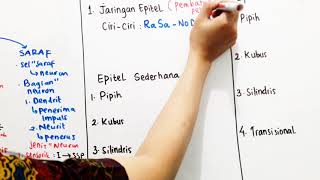 SARAF
Sel" Saraf
↳ Neuron
Bagian"
neuron
1. Dendrit
↳ Penerima
impuls
2. Neurit
↳ penerus
Jenis" Neuron
I → SSP
1. Jaringan Epitel
Ciri-Ciri : RaSa - No
Epitel Sederhana
1. Pipih
2. Kubus
3. Silindris
Pipih
2. Kubus
3. Silindris
4. Transisional